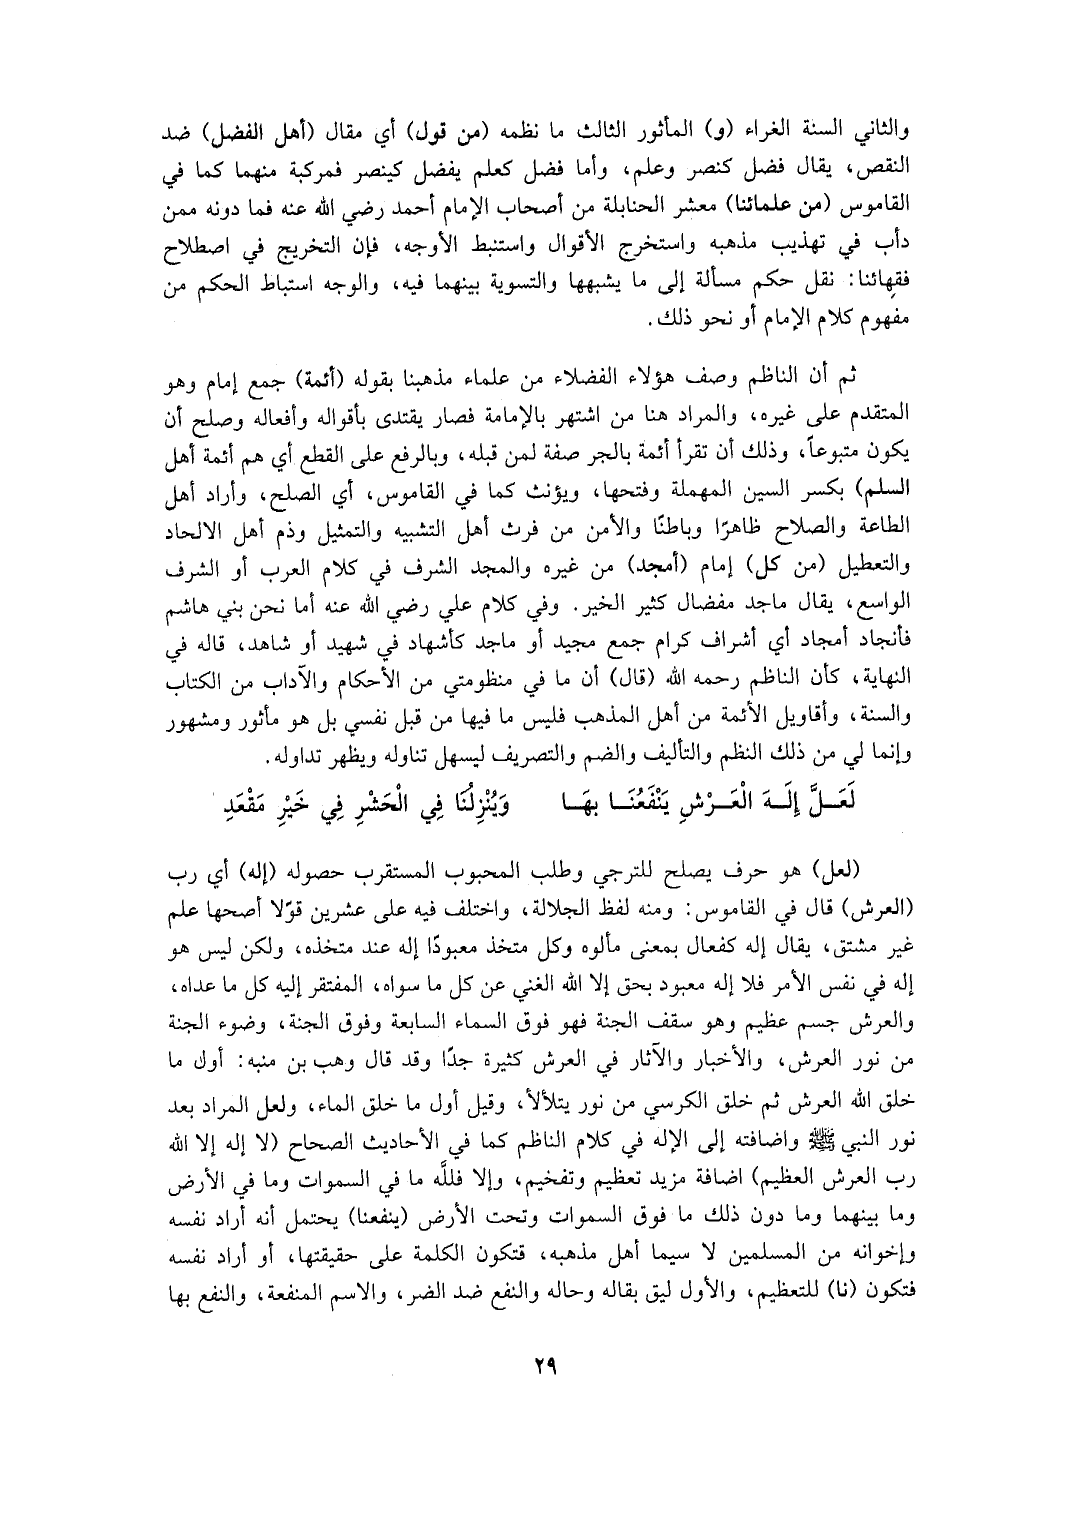 والثاني السنة الغراء (و) المأثور الثالث ما نظمه (من قول) أي مقال (أهل الفضل) ضد
النقص، يقال فضل كنصر وعلم، وأما فضل كعلم يفضل كينصر فمركبة منهما كما في
القاموس (من علمائنا) معشر الحنابلة من أصحاب الإمام أحمد رضي الله عنه فما دونه ممن
دأب في تهذيب مذهبه واستخرج الأقوال واستنبط الأوجه، فإن التخريج في اصطلاح
فقهائنا: نقل حكم مسألة إلى ما يشبهها والتسوية بينهما فيه، والوجه استباط الحكم من
مفهوم كلام الإمام أو نحو ذلك.
ثم أن الناظم وصف هؤلاء الفضلاء من علماء مذهبنا بقوله (أئمة) جمع إمام وهو
المتقدم على غيره، والمراد هنا من اشتهر بالإمامة فصار يقتدى بأقواله وأفعاله وصلح أن
يكون متبوعاً، وذلك أن تقرأ أئمة بالجر صفة لمن قبله، وبالرفع على القطع أي هم أئمة أهل
السلم) بكسر السين المهملة وفتحها، ويؤنث كما في القاموس، أي الصلح، وأراد أهل
الطاعة والصلاح ظاهرًا وباطنًا والأمن من فرث أهل التشبيه والتمثيل وذم أهل الالحاد
والتعطيل (من كل) إمام (أمجد) من غيره والمجد الشرف في كلام العرب أو الشرف
الواسع، يقال ماجد مفضال كثير الخير. وفي كلام علي رضي الله عنه أما نحن بني هاشم
فأنجاد أمجاد أي أشراف كرام جمع مجيد أو ماجد كأشهاد في شهيد أو شاهد، قاله في
النهاية، كأن الناظم رحمه الله (قال) أن ما في منظومتي من الأحكام والآداب من الكتاب
والسنة، وأقاويل الأئمة من أهل المذهب فليس ما فيها من قبل نفسي بل هو مأثور ومشهور
وإنما لي من ذلك النظم والتأليف والضم والتصريف ليسهل تناوله ويظهر تداوله.
لَعَـلَّ إِلَـهَ الْعَـرْشِ يَنْفَعُنَـا بِهَـا وَيُنْزِلُنَا فِي الْحَشْرِ فِي خَيْرِ مَقْعَدِ
(لعل) هو حرف يصلح للترجي وطلب المحبوب المستقرب حصوله (إله) أي رب
(العرش) قال في القاموس: ومنه لفظ الجلالة، واختلف فيه على عشرين قوّلا أصحها علم
غير مشتق، يقال إله كفعال بمعنى مألوه وكل متخذ معبودًا إله عند متخذه، ولكن ليس هو
إله في نفس الأمر فلا إله معبود بحق إلا الله الغني عن كل ما سواه، المفتقر إليه كل ما عداه،
والعرش جسم عظيم وهو سقف الجنة فهو فوق السماء السابعة وفوق الجنة، وضوء الجنة
من نور العرش، والأخبار والآثار في العرش كثيرة جدًا وقد قال وهب بن منبه: أول ما
خلق الله العرش ثم خلق الكرسي من نور يتلألأ، وقيل أول ما خلق الماء، ولعل المراد بعد
نور النبي ﷺ واضافته إلى الإله في كلام الناظم كما في الأحاديث الصحاح (لا إله إلا الله
رب العرش العظيم) اضافة مزيد تعظيم وتفخيم، وإلا فللَّه ما في السموات وما في الأرض
وما بينهما وما دون ذلك ما فوق السموات وتحت الأرض (ينفعنا) يحتمل أنه أراد نفسه
وإخوانه من المسلمين لا سيما أهل مذهبه، فتكون الكلمة على حقيقتها، أو أراد نفسه
فتكون (نا) للتعظيم، والأول ليق بقاله وحاله والنفع ضد الضر، والاسم المنفعة، والنفع بها
٢٩